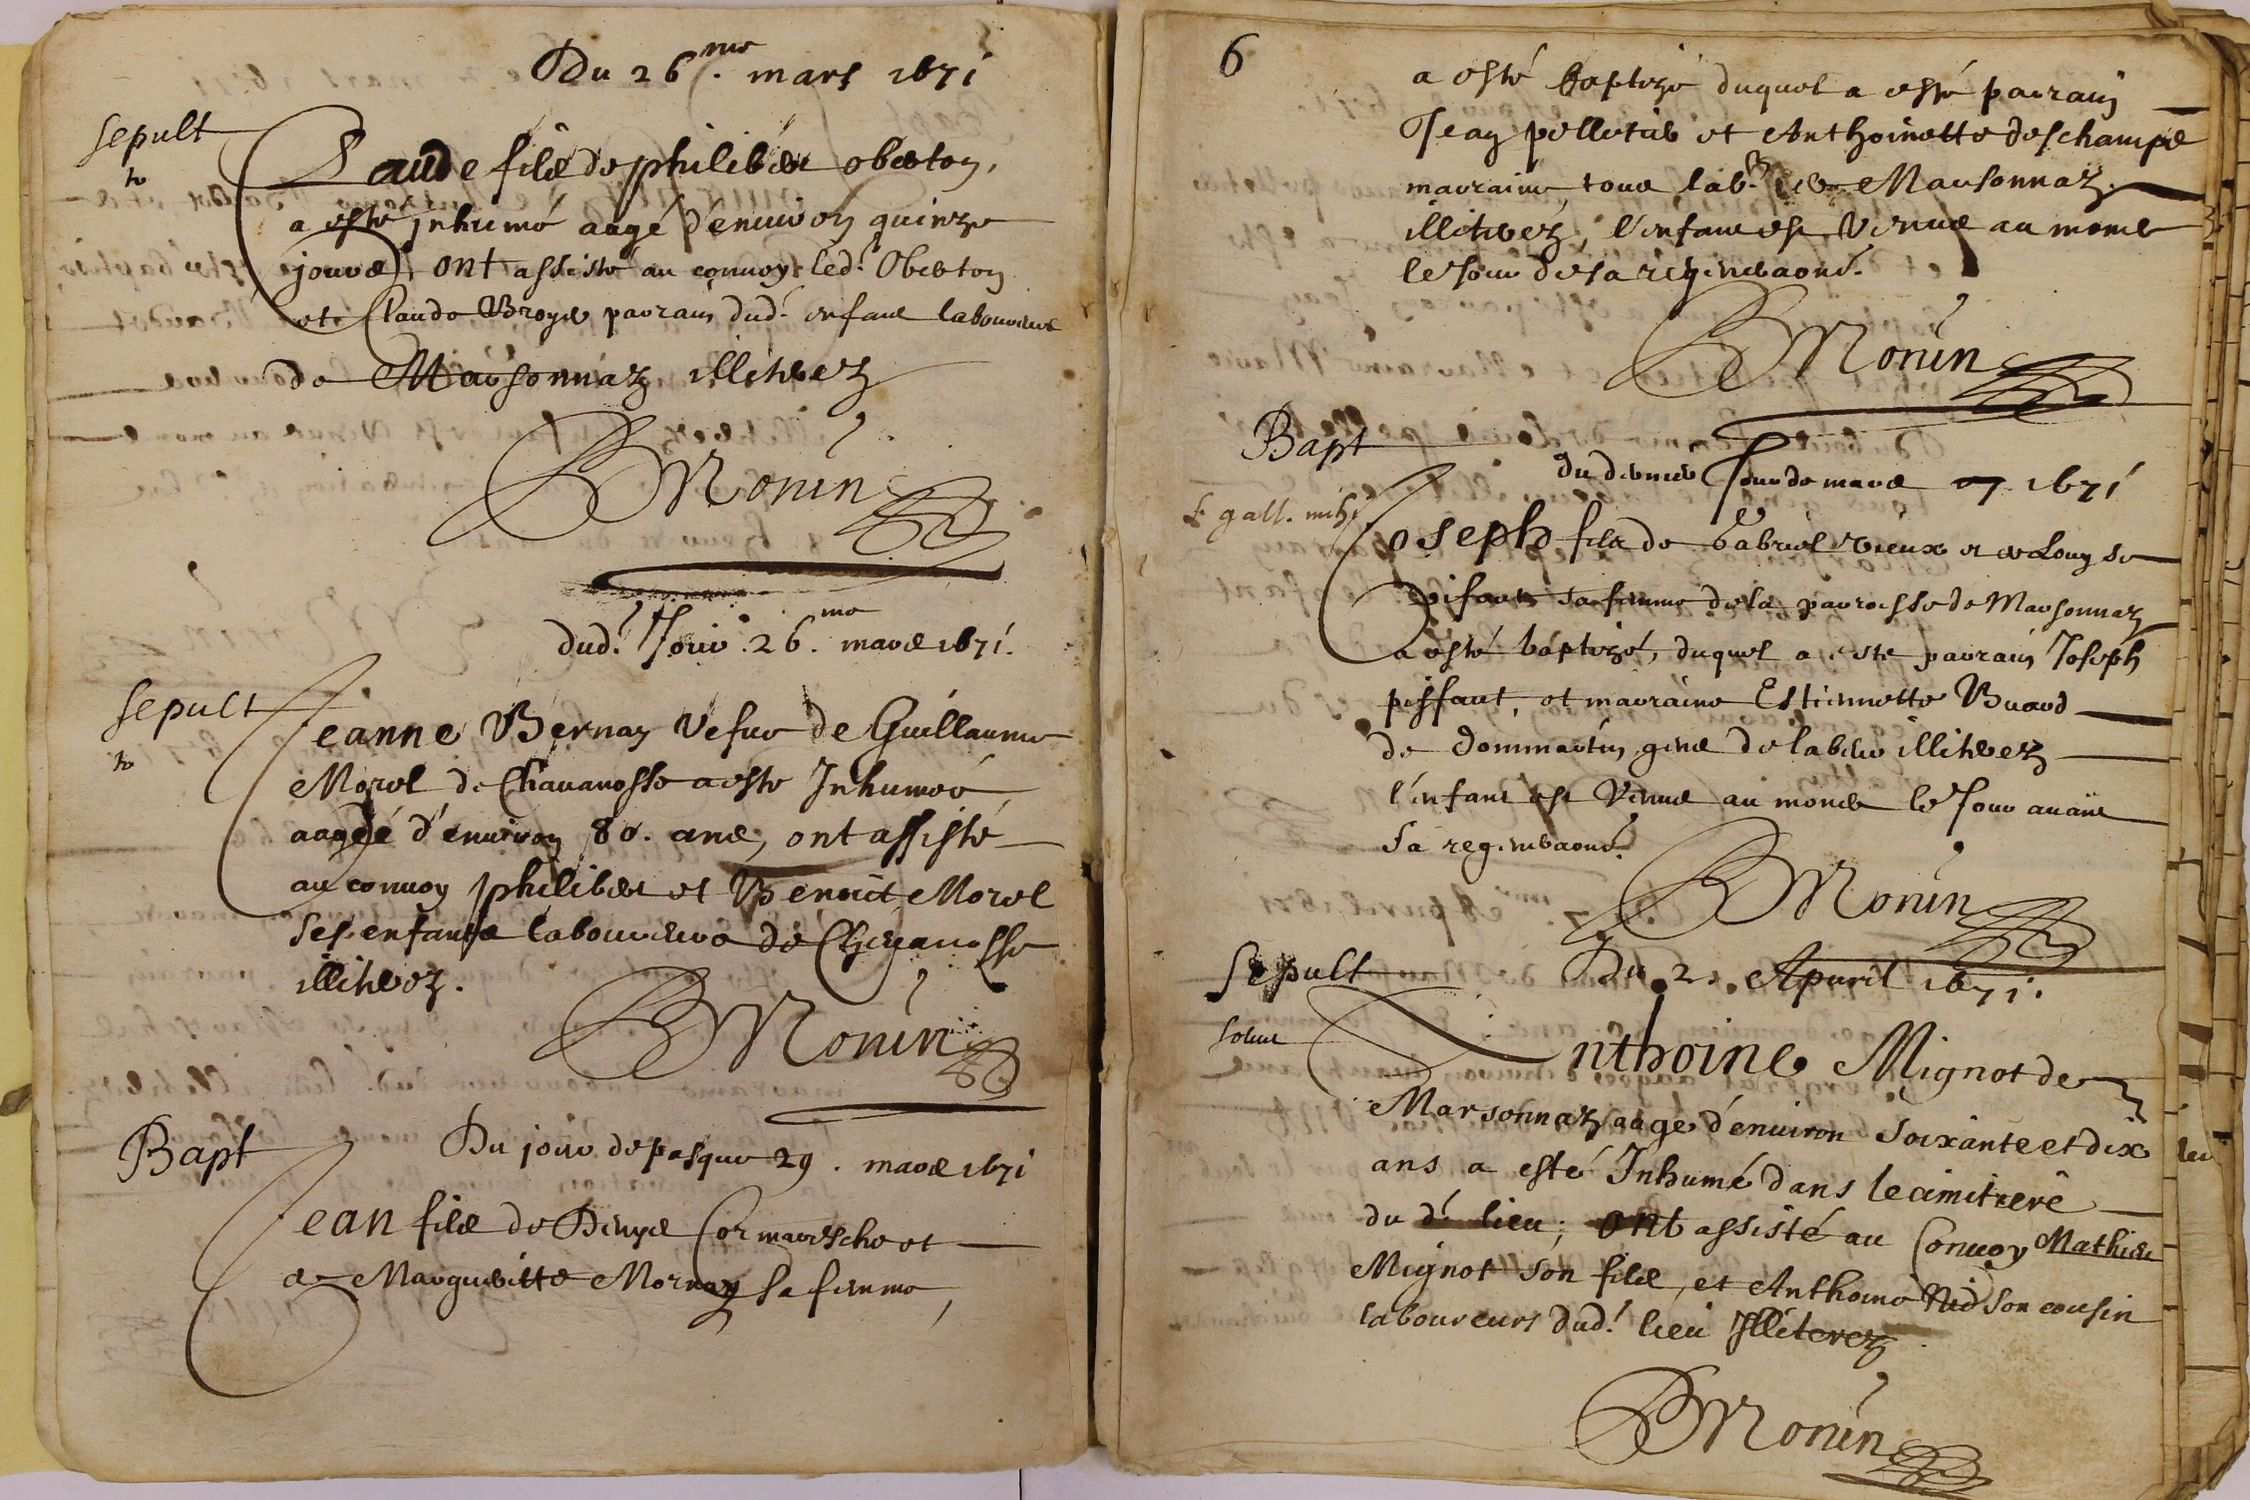 Du 26.me mars 1671
Sepult
Claude filz de philibert oberton,
a esté inhumé aagé d'enuiron quinze
jours, ont assisté au conuoy led. Oberton
et Claude Broyer parrain dud. enfant laboureurs
de Marsonnaz illiterez
BMonin
dud. Jour 26.me mars 1671.
Sepult
Jeanne Bernaz vefue de Guillaume
Morel de Chauanosse a esté Inhumeé
aageé d'enuiron 80. ans, ont assisté
au conuoy philibert et Benoit Morel
ses enfants laboureurs de Chauanosse
illiterez.
BMonin
Bapt
Du jour de pasque 29. mars 1671
Jean filz de Denys Cormaresche et
de Margueritte Mornay sa femme,
6
a esté baptizé duquel a esté parrain
Jean pelletier et Anthoinette deschamps
marraine tous lab.rs de Marsonnaz
illiterez, l'enfant est venus au monde
le jour de sa regeneraoné.
BMonin
Bapt
du dernier Jour de mars 1671
Joseph filz de Gabriel vieux et de Louyse
pifaut sa femme de la parroisse de Marsonnaz
a esté baptizé, duquel a esté parrain Joseph
piffaut, et marraine Estiennette Buard
de dommartin gens de labeur illiterez
l'enfant est venus au monde le Jour auant
sa regeneraoné.
BMonin
Sepult
Du 2. Apuril 1671.
solut
Anthoine Mignot de
Marsonnaz aagé d'enuiron soixante et dix
ans a esté Inhumé dans le cimitiere
du d. lieu; ont assisté au Conuoy Mathieu
Mignot son filz, et Anthoine Nid son cousin
laboureurs dud. lieu Illiterez
BMonin